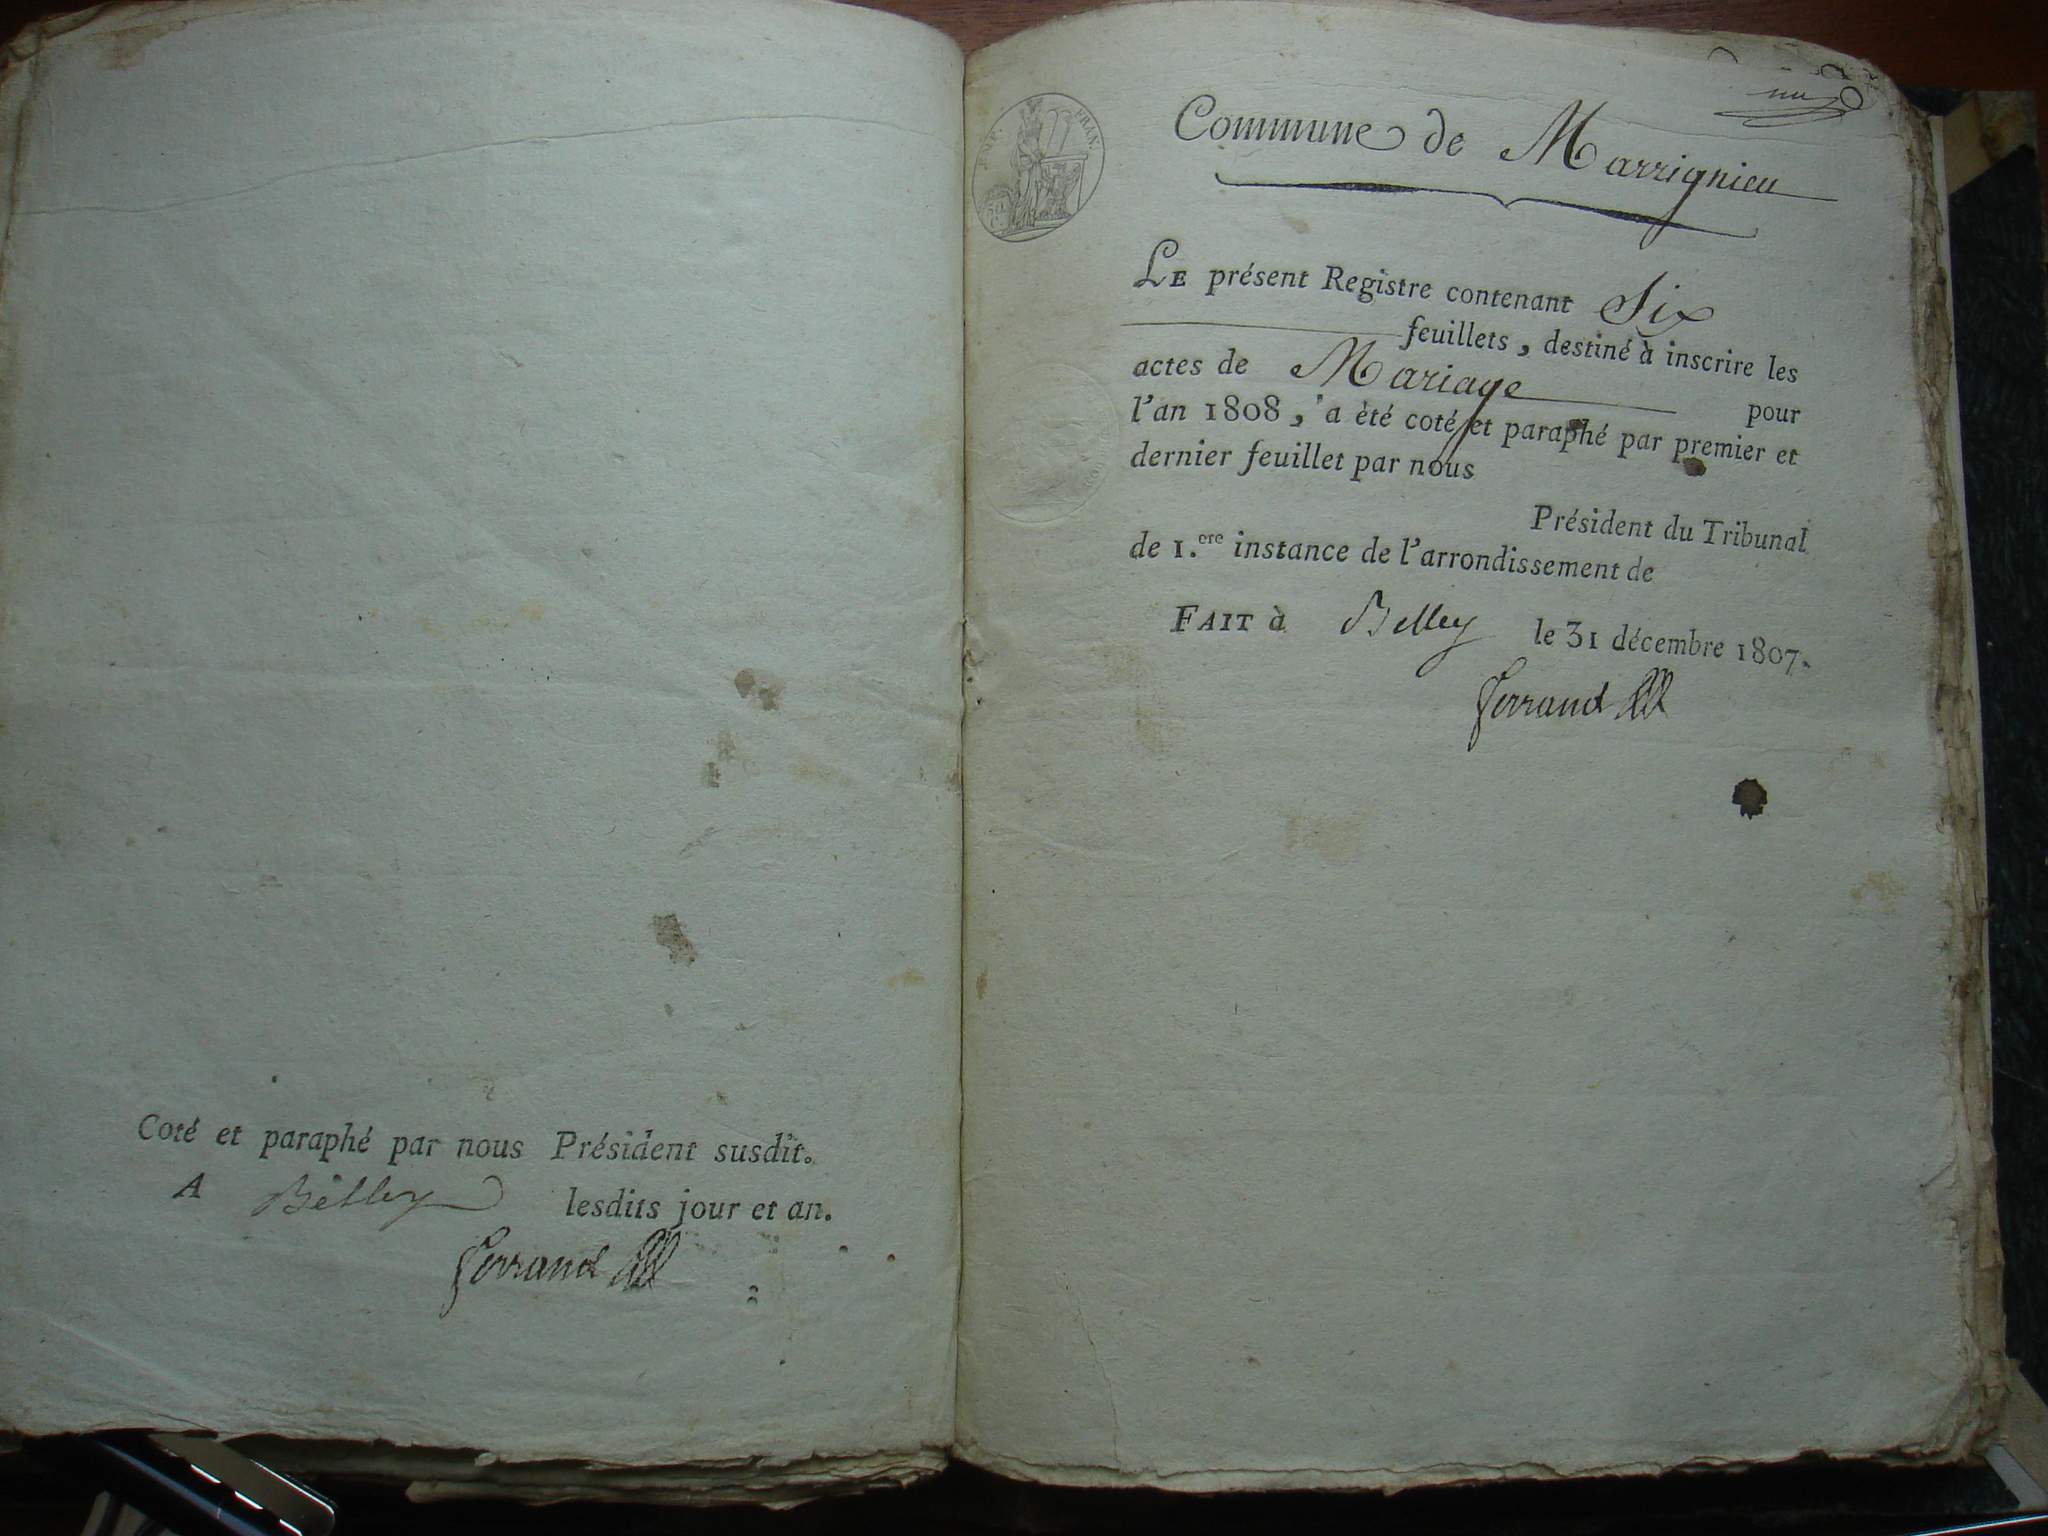 Coté et paraphé par nous Président susdit.
A Belley lesdits jour et an.
Ferrand
IMP. FRAN.
Commune de Marrignieu
LE présent Registre contenant Six
feuillets, destiné à inscrire les
actes de Mariage pour
l'an 1808, a été coté et paraphé par premier et
dernier feuillet par nous
Président du Tribunal
de 1.ere instance de l'arrondissement de
FAIT à Belley le 31 décembre 1807.
Ferrand